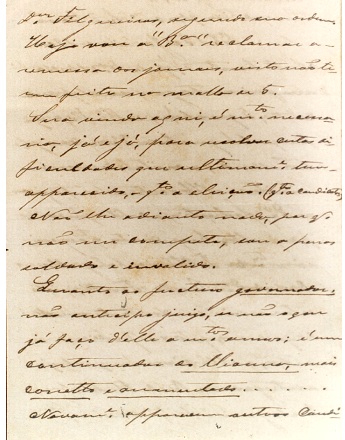 Dor Felgueiras, segundo suas ordens.
Hoje vou á "Bª" reclamar a
remessa dos jornaes, visto não te-
rem feito no malla de 6.
Sua vinda aqui, é mto necessa-
ria, já e já, para resolver certas dif-
ficuldades que ultimamte tem
apparecido, - qto a eleição. (qto a candidato)
Não lhe adianto nada, porq̃
não me compete, sou o pobre
soldado e invalido.
Quanto ao futuro governador,
não antecipo juizo, a não ser q
já faço d'elle a mtos annos: é um
continuador do Vianna, mais
correcto e augmentado.......
Novamte apparecem outros candi-